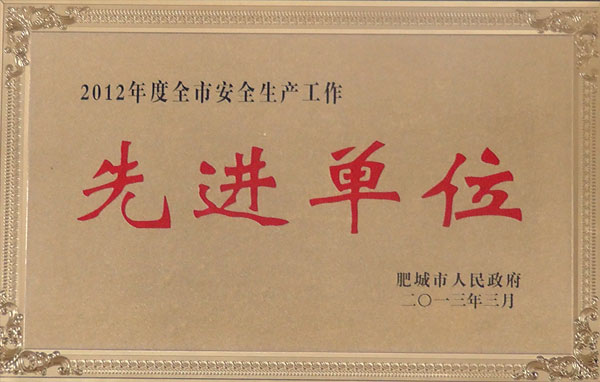 2012年度全市安全生产工作
先进单位
肥城市人民政府
二〇一三年三月